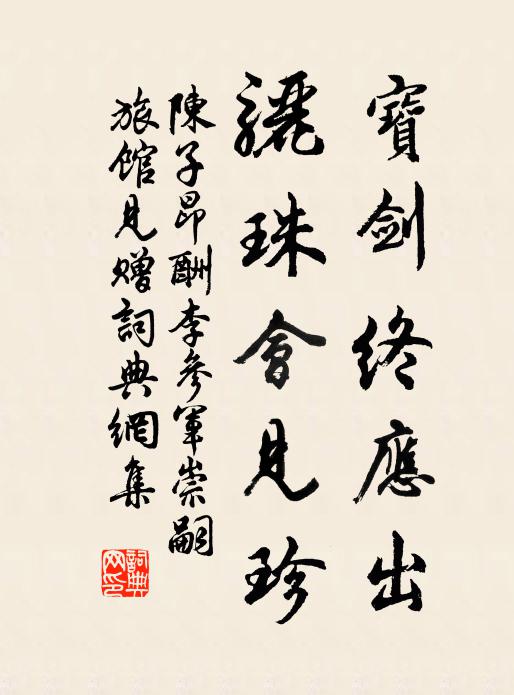 寶劍終應出
驪珠會見珍
陳子昂酬李參軍崇嗣
旅館見贈詞典網集
詞典网印